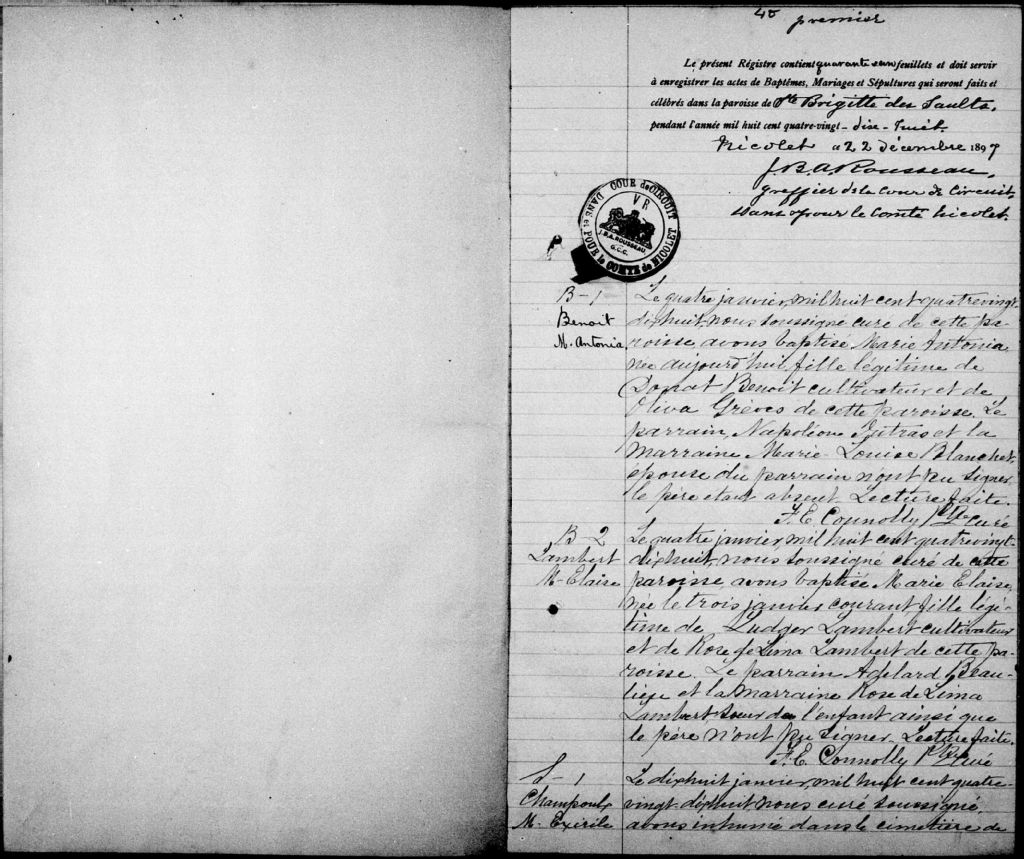 45
premier
Le présent Régistre contient quarante cinq feuillets et doit servir
à enregistrer les actes de Baptêmes, Mariages et Sépultures qui seront faits et
célébrés dans la paroisse de Ste Brigitte des Saults,
pendant l'année mil huit cent quatre-vingt-dix-huit.
Nicolet a 22 décembre 1897
J. B. A. Rousseau,
greffier de la Cour de Circuit,
dans & pour le Comté Nicolet.
COUR de CIRCUIT
DANS et POUR le COMTE de NICOLET
VR
J.B.A. ROUSSEAU
G.C.C.
B-1
Benoit
M. Antonia.
Le quatre janvier, mil huit cent quatrevingt
dixhuit, nous soussigné curé de cette pa-
roisse, avons baptisé Marie Antonia
née aujourd'hui, fille légitime de
Donat Benoit cultivateur et de
Oliva Grèves de cette paroisse. Le
parrain, Napoléon Jutras et la
marraine Marie-Louise Blanchet,
épouse du parrain n'ont pu signer,
le père etant absent. Lecture faite.
F. E. Connolly Ptre Curé
B-2
Lambert
M-Elaise
Le quatre janvier, mil huit cent quatrevingt-
dixhuit, nous soussigné curé de cette
paroisse avons baptisé Marie Elaise,
née le trois janvier courant fille légi-
time de Ludger Lambert cultivateur
et de Rose de Lima Lambert de cette pa-
roisse. Le parrain Adelard Beau-
liege et la marraine Rose de Lima
Lambert soeur de l'enfant ainsi que
le père n'ont pu signer. Lecture faite.
F. E. Connolly Ptre Curé
S-1
Champoux
M-Exirile
Le dixhuit janvier, mil huit cent quatre-
vingt-dixhuit, nous curé soussigné
avons inhumé dans le cimetière de